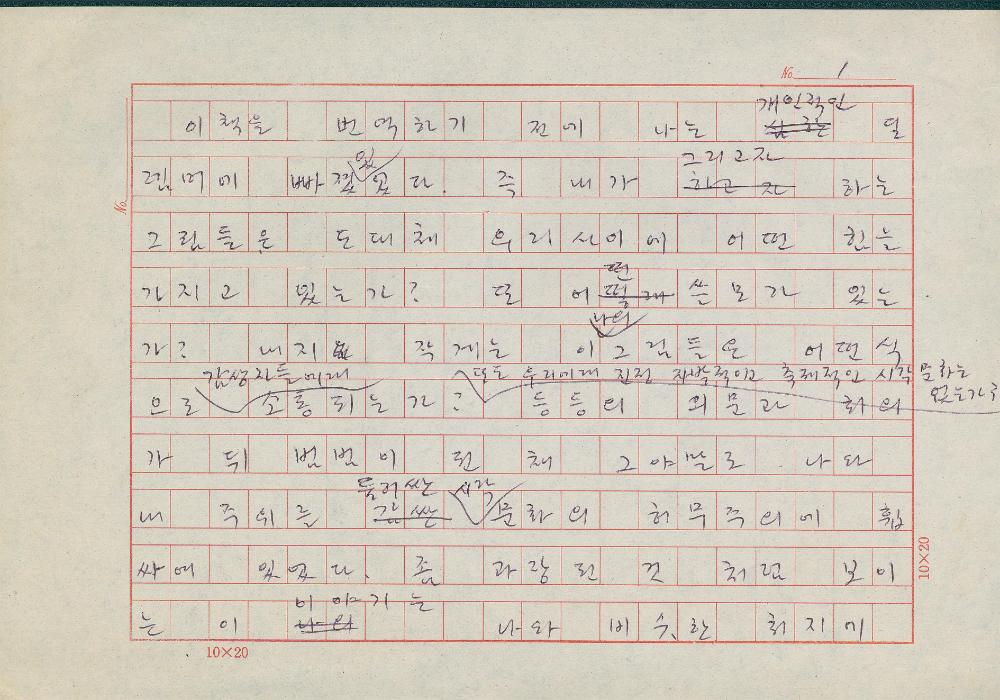 No. 1
개인적인
이 책을 번역하기 전에 나는 심한 딜
있 그리고자
렘머에 빠졌었다. 즉 내가 하고자 하는
No.
그림들은 도대체 우리 사이에 어떤 힘을
떤
가지고 있는가? 또 어떻게 쓸모가 있는
나의
가? 내지 작게는 이 그림들은 어떤 식
감상자들에게 또는 우리에게 진정 자발적이고 축제적인 시각문화는 있는가?
으로 소통되는가? 등등의 의문과 회의
가 뒤범벅이 된 채 그야말로 나와
둘러싼 시각
내 주위를 감싼 문화의 허무주의에 휩
싸여 있었다. 좀 과장된 것처럼 보이
이야기는
는 이 나와 비슷한 처지에
10×20
10×20